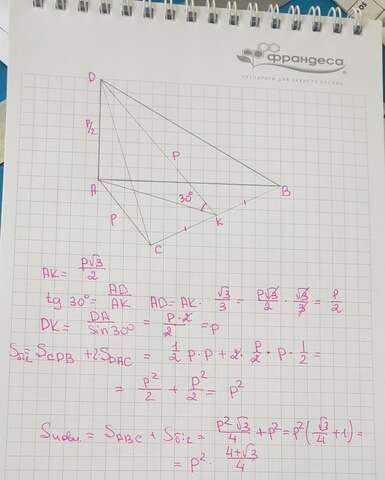 франдеса®
D
P/2
P
A
30°
B
P
K
C
AK = P√3/2
tg 30° = AD/AK AD = AK · √3/3 = P√3/2 · √3/3 = P/2
DK = DA/sin 30° = P·2/2 = P
Sбіч = SCDB + 2·SDAC = 1/2 P·P + 2·P/2·P·1/2 =
= P²/2 + P²/2 = P²
Sповн. = SABC + Sбіч = P²√3/4 + P² = P²(√3/4 + 1) =
= P² · 4+√3/4